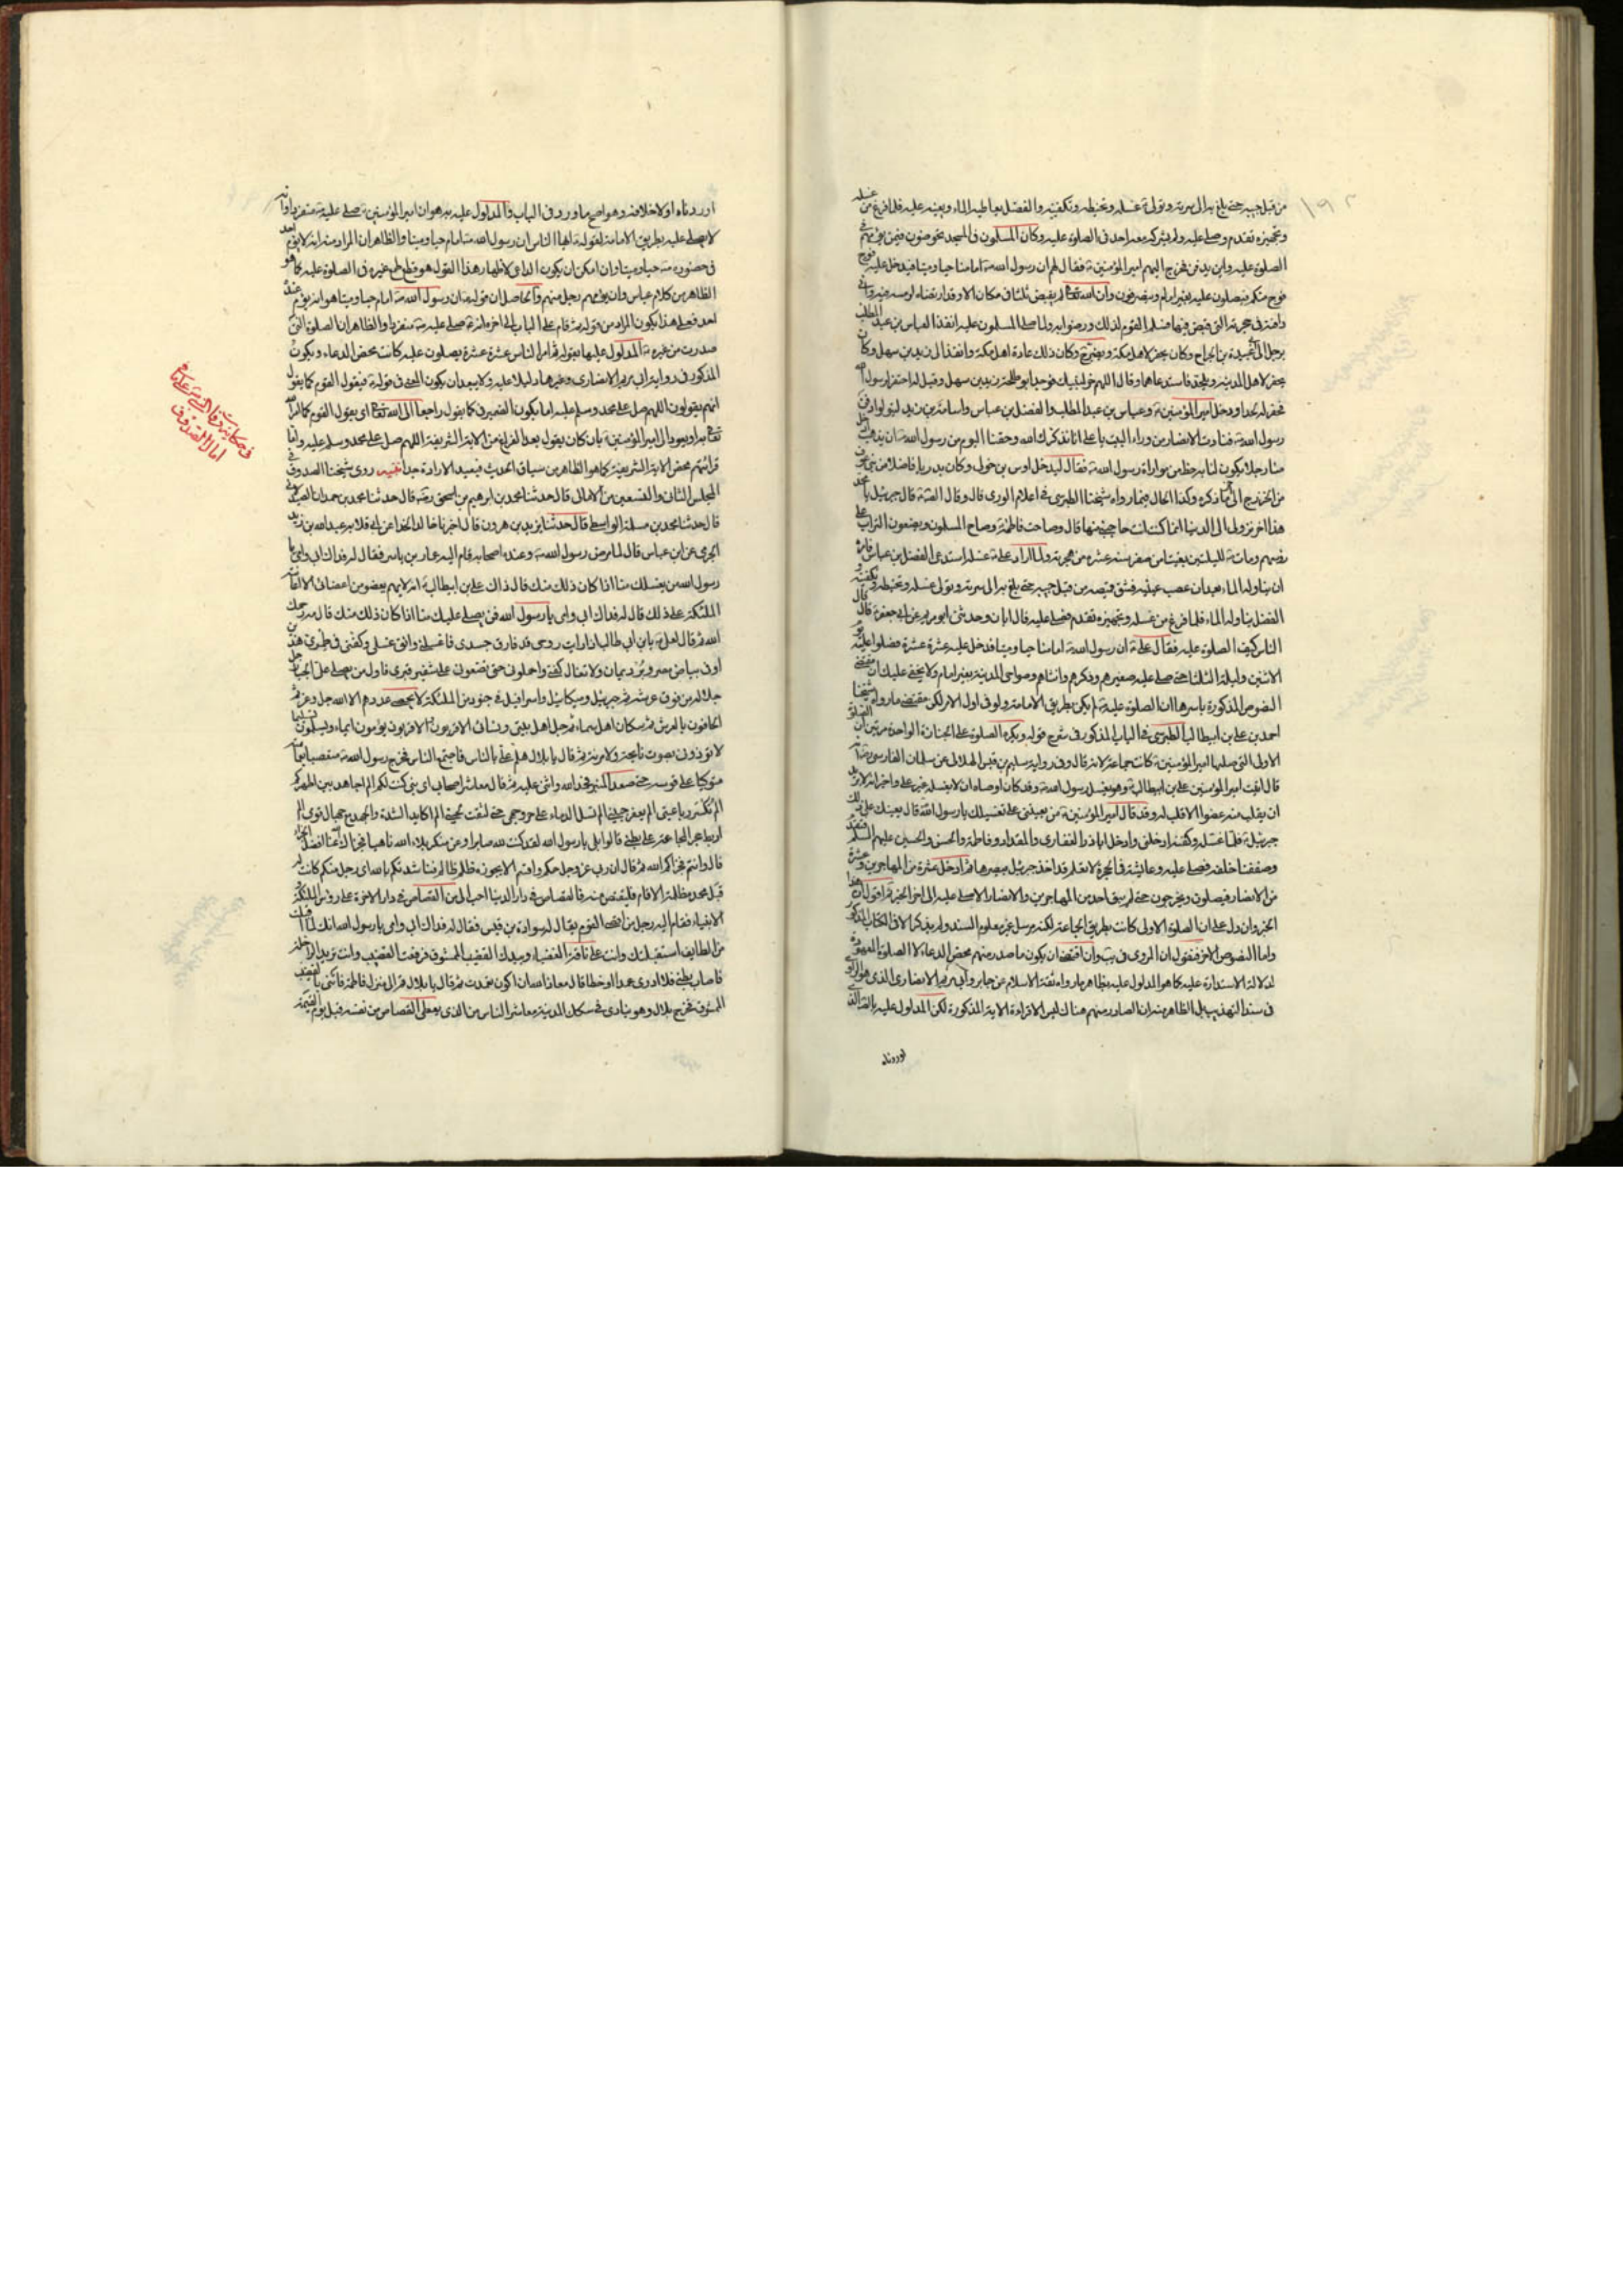 ١٩٢
من قبل جيبه حتى بلغ به الى سرته وتولى غسله وتحنيطه وتكفينه والفضل يعاطيه الماء ويعينه عليه فلما فرغ من غسله
وتجهيزه تقدم وصلى عليه ولم يشركه معه احد في الصلوة عليه وكان المسلمون في المسجد يخوضون فيمن يؤمهم في
الصلوة عليه واين يدفن فخرج اليهم امير المؤمنين فقال لهم ان رسول الله امامنا حيا وميتا فيدخل عليه فوج
فوج منكم فيصلون عليه بغير امام وينصرفون وان الله تعالى لم يقبض نبيا في مكان الا وقد ارتضاه لرمسه فيه واني
دافنه في حجرته التي قبض فيها فسلم القوم لذلك ورضوا به ولما صلى المسلمون عليه انفذ العباس بن عبد المطلب
برجل الى ابي عبيدة بن الجراح وكان يحفر لاهل مكة ويضرح وكان ذلك عادة اهل مكة وانفذ الى زيد بن سهل وكان
يحفر لاهل المدينة ويلحد فاستدعاهما وقال اللهم خر لنبيك فوجد ابو طلحة زيد بن سهل وقيل له احتفر لرسول الله
فحفر له لحدا ودخل امير المؤمنين وعباس بن عبد المطلب والفضل بن عباس واسامة بن زيد ليتولوا دفن
رسول الله فنادت الانصار من وراء البيت يا علي انا نذكرك الله وحقنا اليوم من رسول الله ان يذهب ادخل
منا رجلا يكون لنا به حظ من مواراة رسول الله فقال ليدخل اوس بن خولي وكان بدريا فاضلا من بني عوف
من الخزرج الى اخر ما ذكره وكذا الحال فيما رواه شيخنا الطبرسي في اعلام الورى قال وقال الثقة قال جبرئيل يا محمد
هذا اخر نزولي الى الدنيا انما كنت انت حاجتي منها قال وصاحت فاطمة وصاح المسلمون ويضعون التراب على
رؤسهم ومات لليلتين بقيتا من صفر سنة عشرة من هجرته ولما اراد علي غسله استدعى الفضل بن عباس فامره
ان يناوله الماء بعد ان عصب عينيه فشق قميصه من قبل جيبه حتى بلغ به الى سرته وتولى غسله وتحنيطه وتكفينه و
الفضل يناوله الماء فلما فرغ من غسله وتجهيزه تقدم فصلى عليه قال ابان وحدثني ابو مريم عن ابي جعفر قال قال
الناس كيف الصلوة عليه فقال علي ان رسول الله امامنا حيا وميتا فدخل عليه عشرة عشرة فصلوا عليه يوم
الاثنين وليلة الثلثا حتى صلى عليه صغيرهم وكبيرهم وذكرهم وانثاهم وضواحي المدينة بغير امام ولا يخفى عليك ان مقتضى
النصوص المذكورة باسرها ان الصلوة عليه لم يكن بطريق الامامة ولو في اول الامر لكن مقتضى ما رواه شيخنا
احمد بن علي بن ابيطالب الطبرسي في الباب المذكور في شرح قوله ويكره الصلوة على الجنازة الواحدة مرتين ان الصلوة
الاولى التي صلاها امير المؤمنين كانت جماعة لانه قال وفي رواية سليم بن قيس الهلالي عن سلمان الفارسي انه
قال اتيت امير المؤمنين علي بن ابيطالب وهو يغسل رسول الله وقد كان اوصاه ان لا يغسله غير علي واخبر انه لا يريد
ان يقلب منه عضوا الا قلب له وقد قال امير المؤمنين من يعينني على تغسيلك يا رسول الله قال يعينك على ذلك
جبرئيل فلما غسله وكفنه ادخلني وادخل اباذر الغفاري والمقداد وفاطمة والحسن والحسين عليهم السلم فتقدم
وصففنا خلفه فصلى عليه وعايشة في الحجرة لا تعلم قد اخذ جبرئيل ببصرها ثم ادخل عشرة من المهاجرين وعشرة
من الانصار فيصلون ويخرجون حتى لم يبق احد من المهاجرين والانصار الا صلى عليه الى اخر الخبر اقول ان هذا
الخبر وان دل على ان الصلوة الاولى كانت بطريق الجماعة لكنه مرسل غير معلوم السند ولم يذكر الا في الكتاب المذكور
واما النصوص الاخر فنقول ان المروي في يب وان اقتضى ان يكون ما صدر منهم محض الدعاء لا الصلوة المعهودة
لدلالة الاستدارة عليه كما هو المدلول عليه بظاهر ما رواه ثقة الاسلام عن جابر وابي مريم الانصاري الذي هو الراوي
في سند التهذيب بل الظاهر منه ان الصادر منهم هناك ليس الا قراءة الاية المذكورة لكن المدلول عليه بالقرائن التي
اوردناه
اوردناه اولا خلافه وهو اصح ما ورد في الباب والمدلول عليه به هو ان امير المؤمنين صلى عليه منفردا وانه
لا يصلى عليه بطريق الامامة لقوله ايها الناس ان رسول الله امام حيا وميتا والظاهر ان المراد منه انه لا يؤم احد
في حضوره حيا وميتا وان امكن ان يكون الداعي لاظهار هذا القول هو قطع طمع غيره في الصلوة عليه كما هو
الظاهر من كلام عباس وان يؤمهم رجل منهم والحاصل ان قوله ان رسول الله امام حيا وميتا هو انه لا يؤم عنده
احد فعلى هذا يكون المراد من قوله ثم قام على الباب الى اخره انه صلى عليه منفردا والظاهر ان الصلوة التي
صدرت من غيره المدلول عليها بقوله ثم امر الناس عشرة عشرة يصلون عليه كانت محض الدعاء ويكون
المذكور في رواية ابي مريم الانصاري وغيرها دليلا عليه ولا يبعد ان يكون المعنى في قوله فيقول القوم كما يقول
انهم يقولون اللهم صل على محمد وسلم عليه اما بكون الضمير في كما يقول راجعا الى الله تعالى اي يقول القوم كما امر الله
تعالى به او يعود الى امير المؤمنين بان كان يقول بعد الفراغ من الاية الشريفة اللهم صل على محمد وسلم عليه واما
قرائتهم محض الاية الشريفة كما هو الظاهر من سياق الحديث فبعيد الارادة جدا تنبيه روى شيخنا الصدوق في
المجلس الثاني والتسعين من الامالي قال حدثنا محمد بن ابرهيم بن اسحق رضه قال حدثنا محمد بن حمدان الصيدلاني
قال حدثنا محمد بن مسلمة الواسطي قال حدثنا يزيد بن هرون قال اخبرنا خالد الحذا عن ابي قلابه عبد الله بن زيد
الجرمي عن ابن عباس قال لما مرض رسول الله وعنده اصحابه قام اليه عمار بن ياسر فقال له فداك ابي وامي يا
رسول الله من يغسلك منا اذا كان ذلك منك قال ذاك علي بن ابيطالب انه لا يهم بعضو من اعضائي الا اعانته
الملئكة على ذلك قال له فداك ابي وامي يا رسول الله فمن يصلي عليك منا اذا كان ذلك منك قال مه رحمك
الله ثم قال لعلي يا بن ابي طالب اذا رايت روحي قد فارق جسدي فاغسلني وانق غسلي وكفني في طمري هذين
او في بياض مصر وبرد يمان ولا تغال كفني واحملوني حتى تضعوني على شفير قبري فاول من يصلي علي الجبار جل
جلاله من فوق عرشه ثم جبرئيل وميكائيل واسرافيل في جنود من الملئكة لا يحصى عددهم الا الله جل وعز ثم
الحافون بالعرش ثم سكان اهل سماء ثم جل اهل بيتي ونسائي الاقربون الاقربون يؤمون ايماء ويسلمون تسليما
لا تؤذوني بصوت نايحة ولا مرنة ثم قال يا بلال هلم علي بالناس فاجتمع الناس فخرج رسول الله متعصبا بعمامته
متوكيا على قوسه حتى صعد المنبر فحمد الله واثنى عليه ثم قال معاشر اصحابي اي نبي كنت لكم الم اجاهد بين اظهركم
الم تكسر رباعيتي الم يعفر جبيني الم تسل الدماء على حر وجهي حتى لثقت لحيتي الم اكابد الشدة والجهد مع جهال قومي الم
اربط حجر المجاعة على بطني قالوا بلى يا رسول الله لقد كنت لله صابرا وعن منكر بلاء الله ناهيا فجزاك الله عنا افضل الجزاء
قال وانتم فجزاكم الله ثم قال ان ربي عز وجل حكم واقسم الا يجوزه ظلم ظالم فناشدتكم بالله اي رجل منكم كانت له
قبل محمد مظلمة الا قام فليقتص منه فالقصاص في دار الدنيا احب الي من القصاص في دار الاخرة على رؤس الملئكة و
الانبياء فقام اليه رجل من اقصى القوم يقال له سوادة بن قيس فقال له فداك ابي وامي يا رسول الله انك لما اقبلت
من الطايف استقبلتك وانت على ناقتك العضباء وبيدك القضيب الممشوق فرفعت القضيب وانت تريد الراحلة
فاصاب بطني فلا ادري عمدا او خطا قال معاذ الله ان اكون تعمدت ثم قال يا بلال قم الى منزل فاطمة فائتني بالقضيب
الممشوق فخرج بلال وهو ينادي في سكك المدينة معاشر الناس من الذي يعطي القصاص من نفسه قبل يوم القيمة